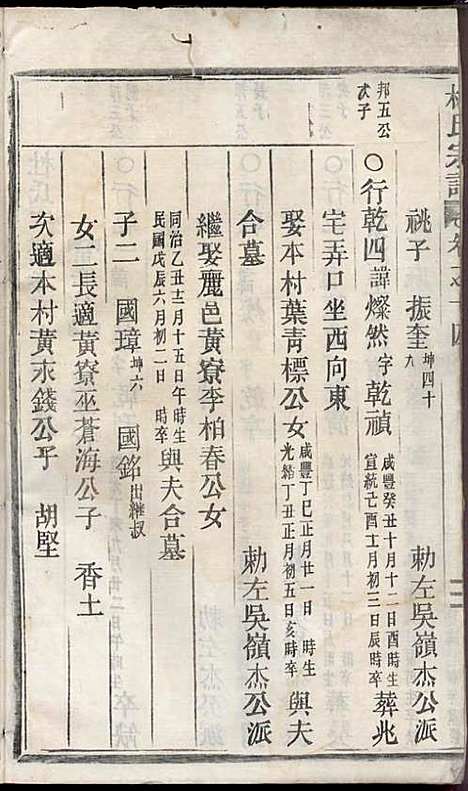 杜氏宗譜
祧子 振奎 坤四十九 勅左吳嶺杰公派
邦五公次子 ○行乾四諱燦然字乾禎 咸豐癸丑十月十二日酉時生 宣統己酉十月初三日辰時卒 葬兆
宅弄口坐西向東
娶本村葉青標公女 咸豐丁巳正月廿一日 時生 光緒丁丑正月初五日亥時卒 與夫
合墓 勅左吳嶺杰公派
繼娶麗邑黃寮李柏春公女
同治乙丑十二月十五日午時生 民國戊辰六月初二日 時卒 與夫合墓
子二 國璋 坤六 國銘 出繼叔
女二長適黃寮巫蒼海公子 香土
次適本村黃永錢公子 胡堅